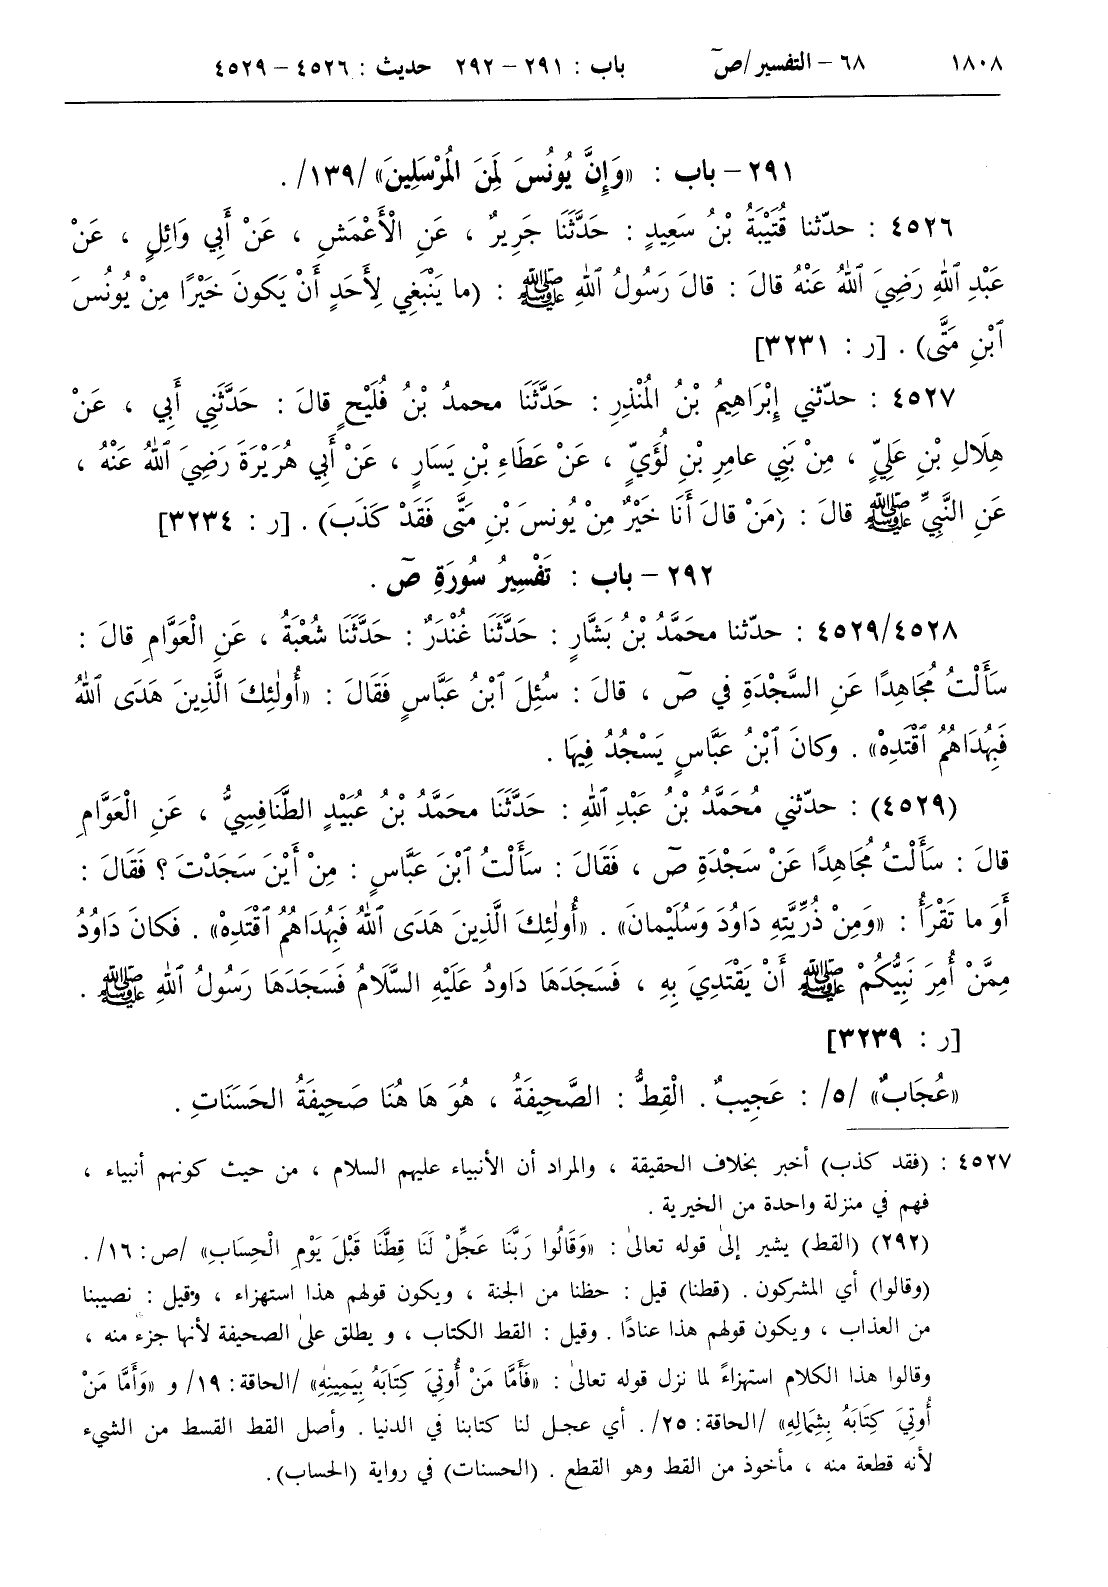 ١٨٠٨ ٦٨ – التفسير/صٓ باب : ٢٩١ – ٢٩٢ حديث : ٤٥٢٦ – ٤٥٢٩
٢٩١ – باب : «وَإِنَّ يُونُسَ لَمِنَ الْمُرْسَلِينَ» /١٣٩/ .
٤٥٢٦ : حدّثنا قُتَيْبَةُ بْنُ سَعِيدٍ : حَدَّثَنَا جَرِيرٌ ، عَنِ الْأَعْمَشِ ، عَنْ أَبِي وَائِلٍ ، عَنْ
عَبْدِ ٱللهِ رَضِيَ ٱللهُ عَنْهُ قالَ : قالَ رَسُولُ ٱللهِ ﷺ : (ما يَنْبَغِي لِأَحَدٍ أَنْ يَكونَ خَيْرًا مِنْ يُونُسَ
ٱبْنِ مَتَّى) . [ر : ٣٢٣١]
٤٥٢٧ : حدّثني إِبْرَاهِيمُ بْنُ الْمُنْذِرِ : حَدَّثَنَا محمدُ بْنُ فُلَيْحٍ قالَ : حَدَّثَنِي أَبِي ، عَنْ
هِلَالِ بْنِ عَلِيٍّ ، مِنْ بَنِي عامِرِ بْنِ لُؤَيٍّ ، عَنْ عَطَاءِ بْنِ يَسَارٍ ، عَنْ أَبِي هُرَيْرَةَ رَضِيَ ٱللهُ عَنْهُ ،
عَنِ النَّبِيِّ ﷺ قالَ : (مَنْ قالَ أَنَا خَيْرٌ مِنْ يُونسَ بْنِ مَتَّى فَقَدْ كَذَبَ) . [ر : ٣٢٣٤]
٢٩٢ – باب : تَفْسِيرُ سُورَةِ صٓ .
٤٥٢٨/٤٥٢٩ : حدّثنا محَمَّدُ بْنُ بَشَّارٍ : حَدَّثَنَا غُنْدَرٌ : حَدَّثَنَا شُعْبَةُ ، عَنِ الْعَوَّامِ قالَ :
سَأَلْتُ مُجَاهِدًا عَنِ السَّجْدَةِ في صٓ ، قالَ : سُئِلَ ٱبْنُ عَبَّاسٍ فَقَالَ : «أُولٰئِكَ الَّذِينَ هَدَى ٱللهُ
فَبِهُدَاهُمُ ٱقْتَدِهْ» . وكانَ ٱبْنُ عَبَّاسٍ يَسْجُدُ فِيهَا .
(٤٥٢٩) : حدّثني مُحَمَّدُ بْنُ عَبْدِ ٱللهِ : حَدَّثَنَا محَمَّدُ بْنُ عُبَيْدٍ الطَّنَافِسِيُّ ، عَنِ الْعَوَّامِ
قالَ : سَأَلْتُ مُجَاهِدًا عَنْ سَجْدَةِ صٓ ، فَقَالَ : سَأَلْتُ ٱبْنَ عَبَّاسٍ : مِنْ أَيْنَ سَجَدْتَ ؟ فَقَالَ :
أَوَ ما تَقْرَأُ : «وَمِنْ ذُرِّيَّتِهِ دَاوُدَ وَسُلَيْمانَ» . «أُولٰئِكَ الَّذِينَ هَدَى ٱللهُ فَبِهُدَاهُمُ ٱقْتَدِهْ» . فَكانَ دَاوُدُ
مِمَّنْ أُمِرَ نَبِيُّكُمْ ﷺ أَنْ يَقْتَدِيَ بِهِ ، فَسَجَدَهَا دَاودُ عَلَيْهِ السَّلَامُ فَسَجَدَهَا رَسُولُ ٱللهِ ﷺ .
[ر : ٣٢٣٩]
«عُجَابٌ» /٥/ : عَجِيبٌ . الْقِطُّ : الصَّحِيفَةُ ، هُوَ هَا هُنَا صَحِيفَةُ الحَسَنَاتِ .
٤٥٢٧ : (فقد كذب) أخبر بخلاف الحقيقة ، والمراد أن الأنبياء عليهم السلام ، من حيث كونهم أنبياء ،
فهم في منزلة واحدة من الخيرية .
(٢٩٢) (القط) يشير إلىٰ قوله تعالىٰ : «وَقَالُوا رَبَّنَا عَجِّلْ لَنَا قِطَّنَا قَبْلَ يَوْمِ الْحِسَابِ» /ص : ١٦/ .
(وقالوا) أي المشركون . (قطنا) قيل : حظنا من الجنة ، ويكون قولهم هذا استهزاء ، وقيل : نصيبنا
من العذاب ، ويكون قولهم هذا عنادًا . وقيل : القط الكتاب ، و يطلق علىٰ الصحيفة لأنها جزء منه ،
وقالوا هذا الكلام استهزاءً لما نزل قوله تعالىٰ : «فَأَمَّا مَنْ أُوتِيَ كِتَابَهُ بِيَمِينِهِ» /الحاقة : ١٩/ و «وَأَمَّا مَنْ
أُوتِيَ كِتَابَهُ بِشِمَالِهِ» /الحاقة : ٢٥/ . أي عجل لنا كتابنا في الدنيا . وأصل القط القسط من الشيء
لأنه قطعة منه ، مأخوذ من القط وهو القطع . (الحسنات) في رواية (الحساب).